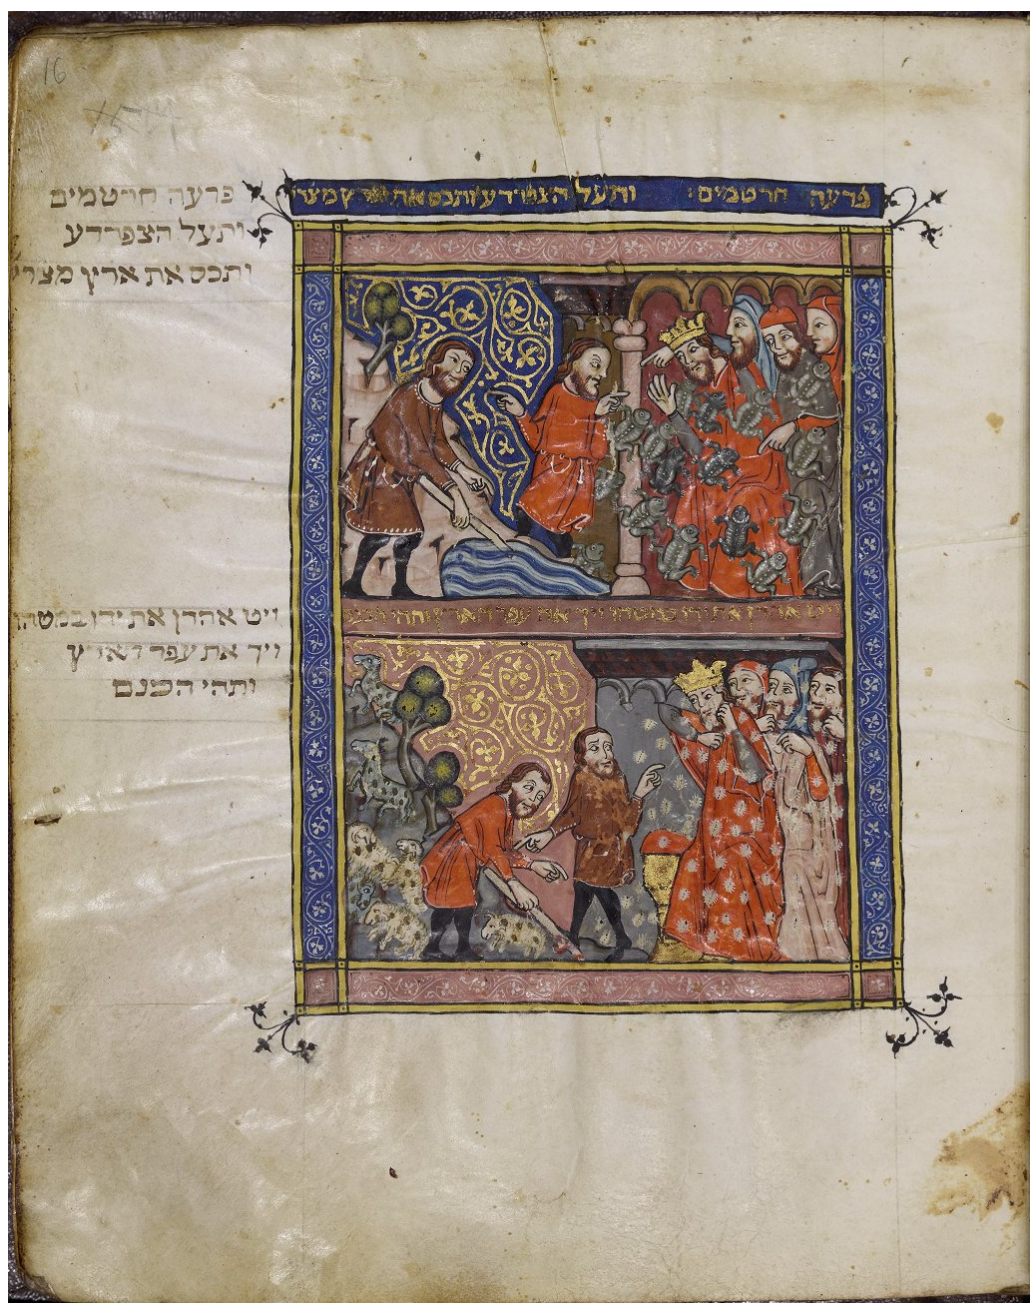 16
פרעה חרטמים׃ ותעל הצפרדע ותכס את ארץ מצרי
פרעה חרטמים
ותעל הצפרדע
ותכס את ארץ מצרי
ויט אהרן את ידו במטהו ויך את עפר הארץ ותהי הכנם
ויט אהרן את ידו במטהו
ויך את עפר הארץ
ותהי הכנם